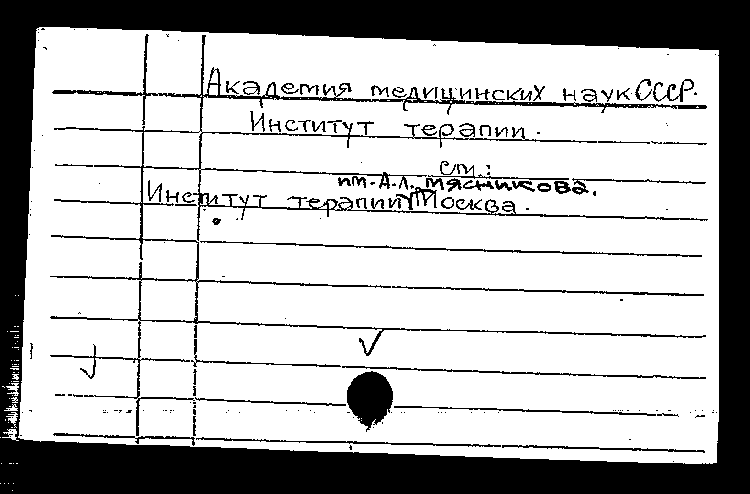 Академия медицинских наук СССР.
Институт терапии.
см.:
им. А.Л. Мясникова.
Институт терапии Москва.